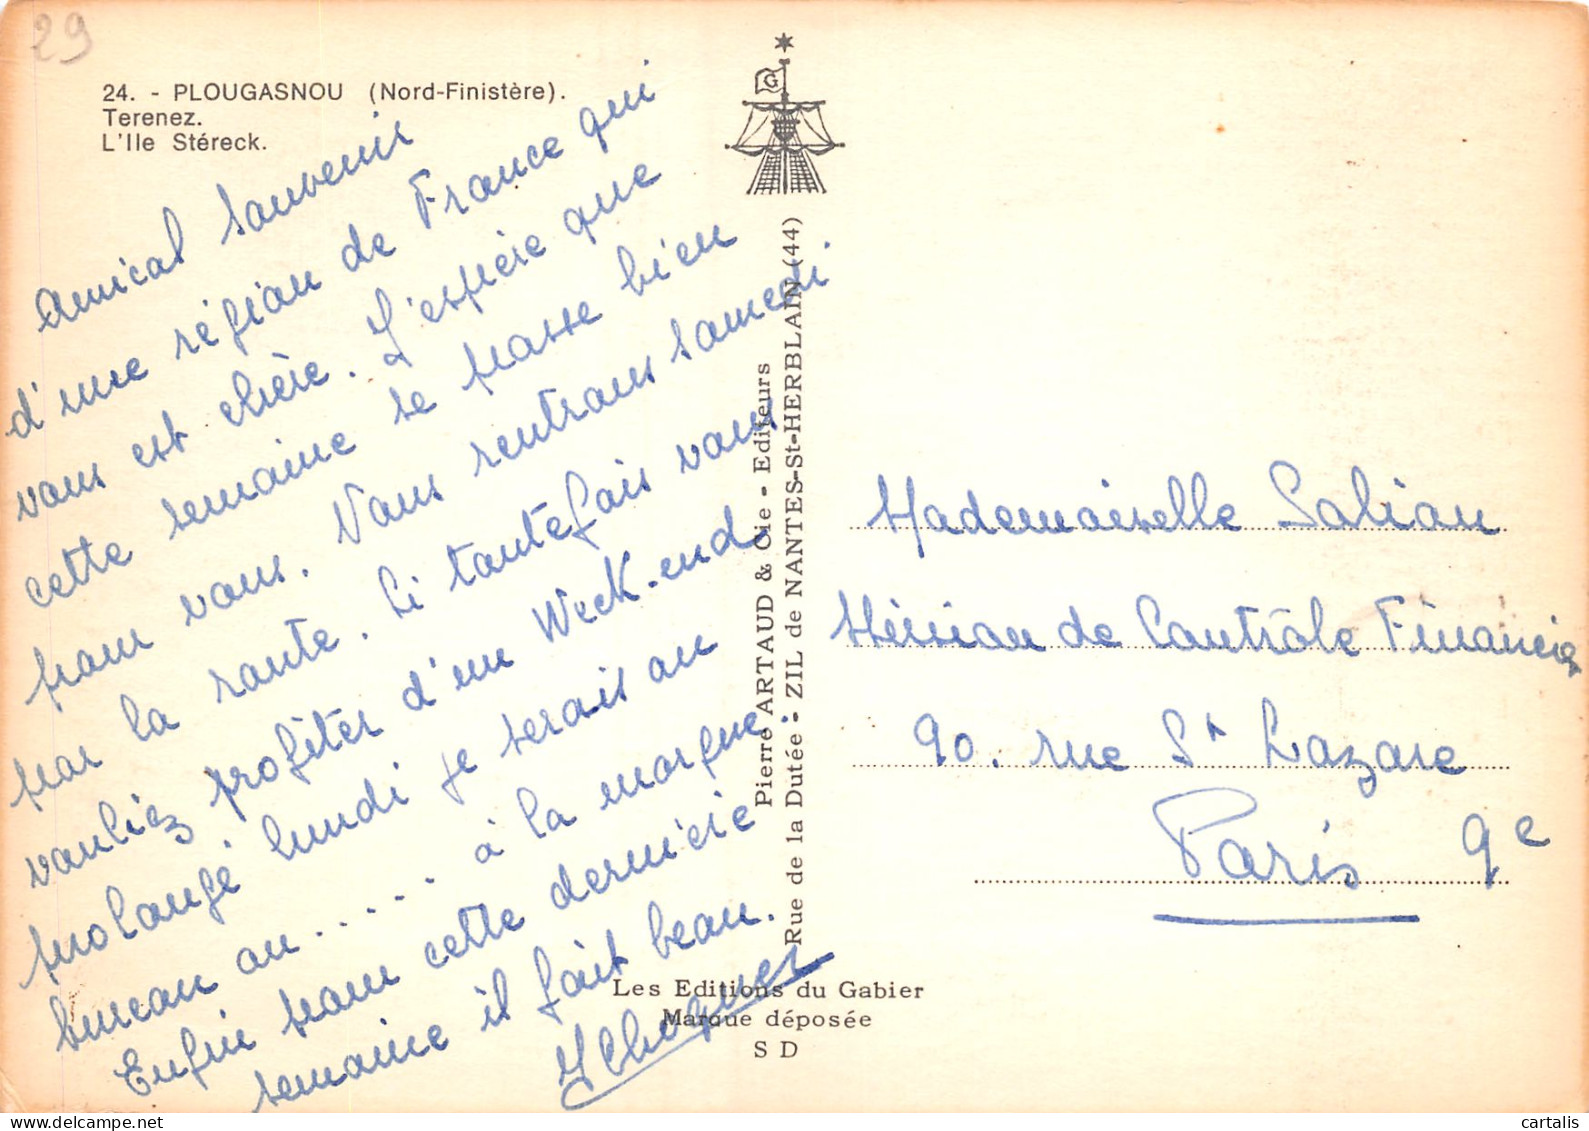 29
24. - PLOUGASNOU (Nord-Finistère).
Terenez.
L'Ile Stéreck.
Amical souvenir
d'une région de France qui
vous est chère. J'espère que
cette semaine se passe bien
pour vous. Nous rentrons samedi
par la route. Si toutefois vous
vouliez profiter d'un Week-end
prolongé lundi je serais au
bureau ou..... à la morgue.
Enfin pour cette dernière
semaine il fait beau.
G
Pierre ARTAUD & Cie - Editeurs
Rue de la Dutée - ZIL de NANTES-St-HERBLAIN (44)
Les Editions du Gabier
Marque déposée
S D
Mademoiselle Saliou
Mission de Contrôle Financier
90. rue St Lazare
Paris 9e
cartalis